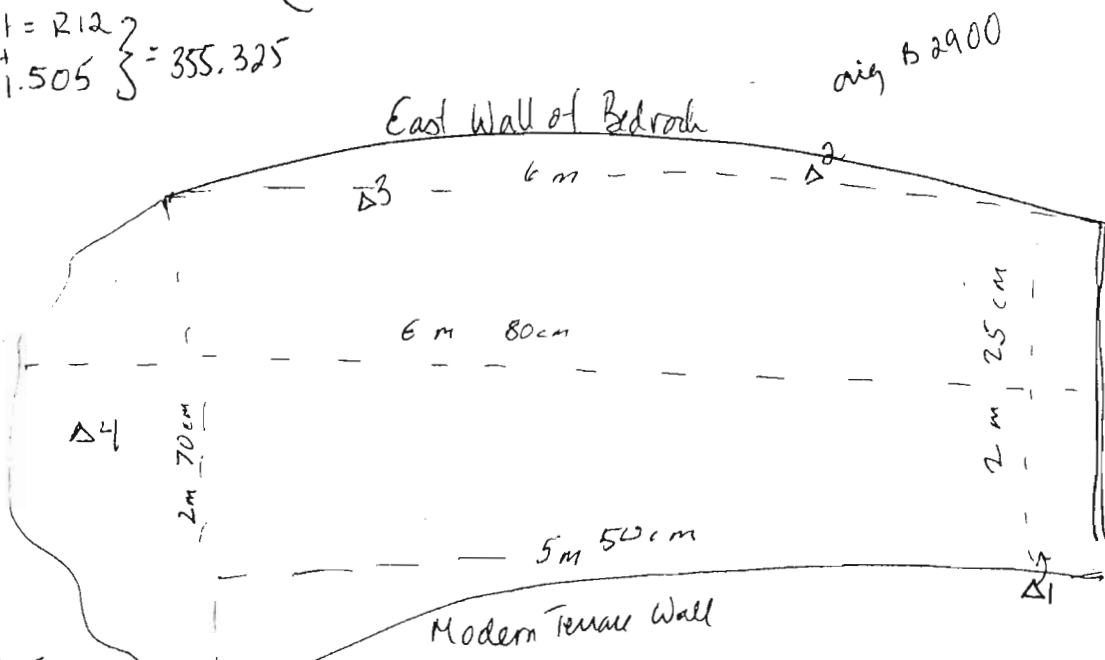 = R12
1.505 } = 355.325
orig B 2900
East Wall of Bedrock
Δ3
6 m
Δ2
6 m 80cm
2 m 25 cm
Δ4
2m 70cm
5m 50cm
Δ1
Modern Terrace Wall